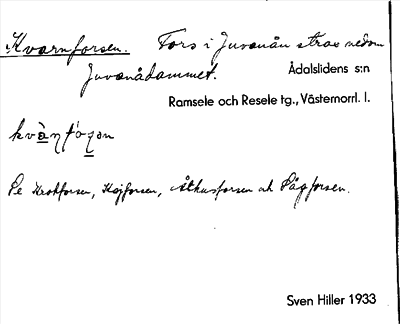 Kvarnforsen. Fors i Juvanån strax nedom
Juvanådammet.
Ådalslidens s:n
Ramsele och Resele tg., Västernorrl. l.
Se Krokforsen, Kojforsen, Åkusforsen och Sågforsen.
Sven Hiller 1933